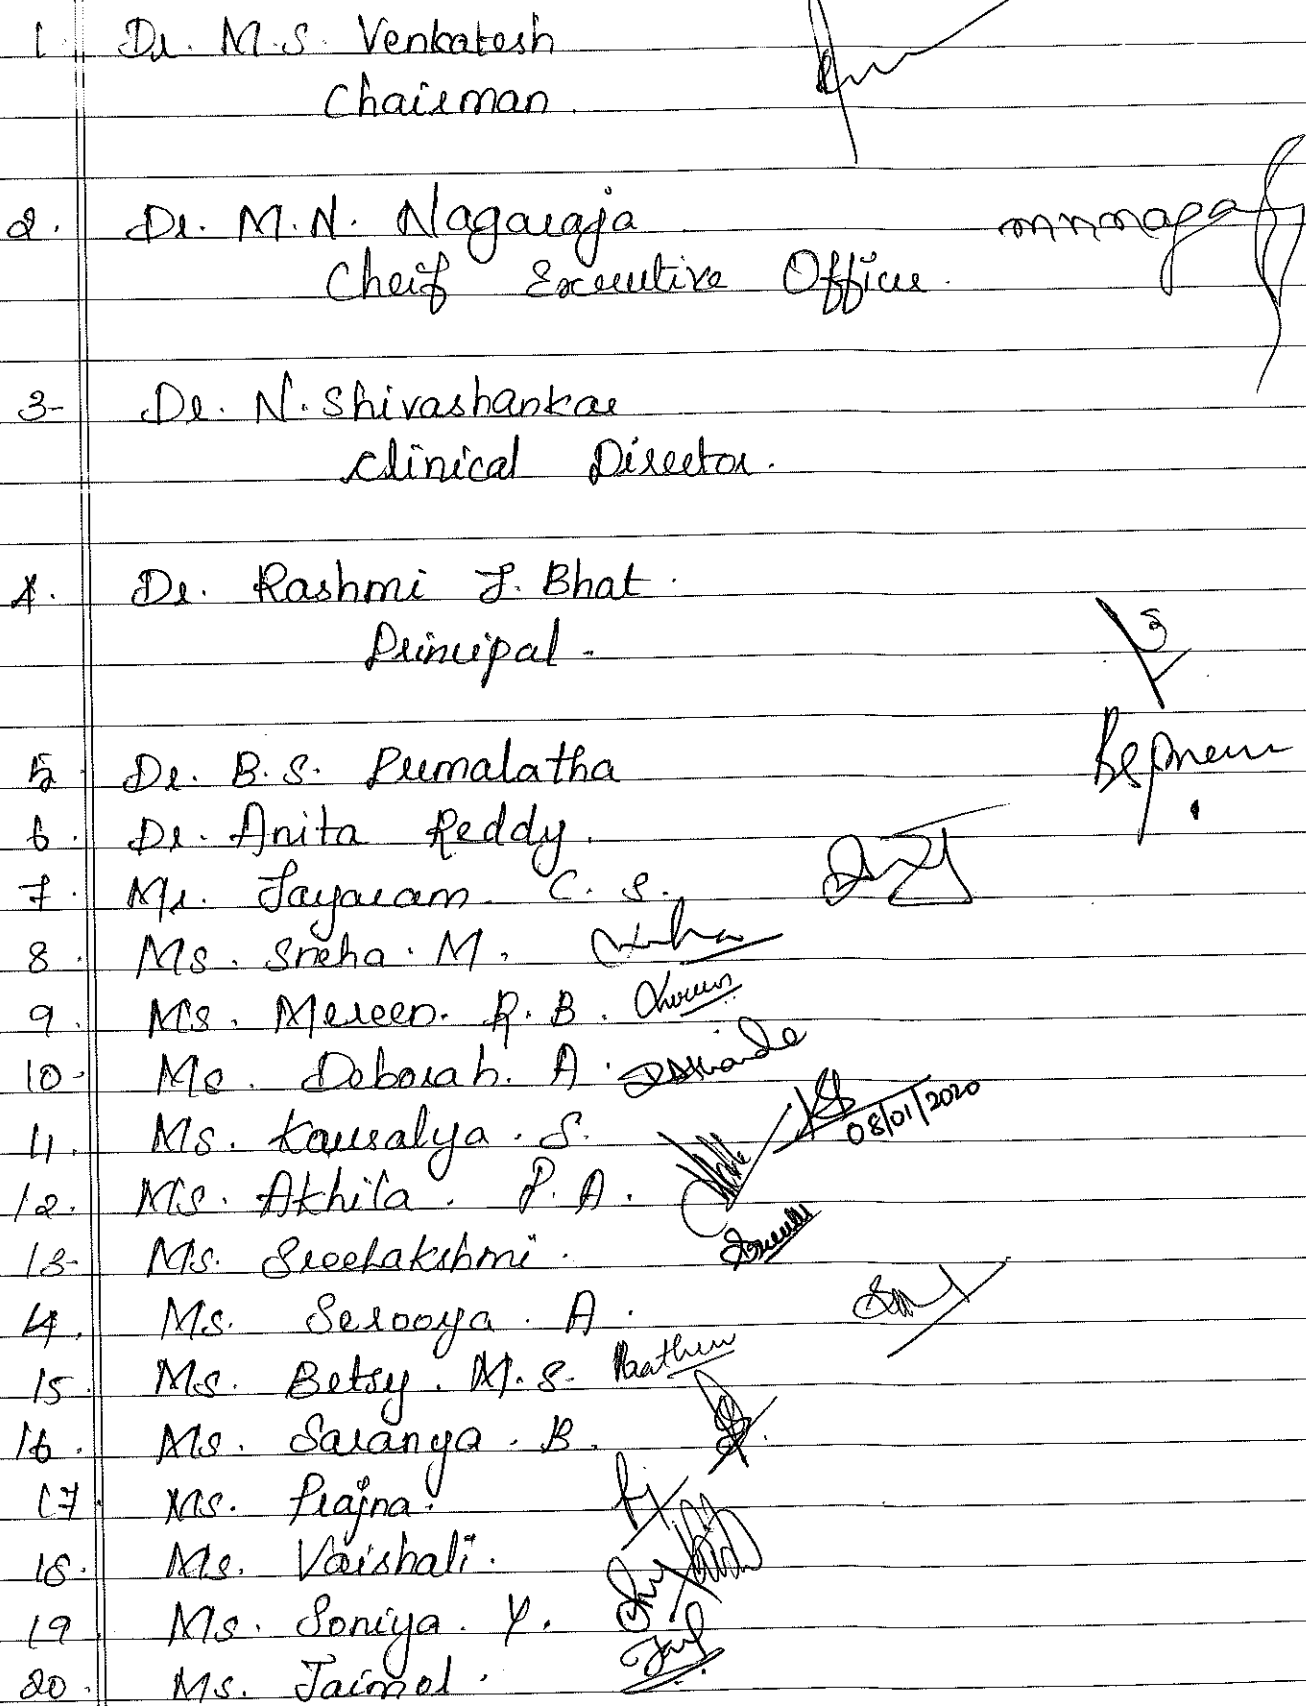 1. Dr. M.S. Venkatesh
Chairman.
2. Dr. M.N. Nagaraja
Cheif Executive Officer.
3- Dr. N. Shivashankar
Clinical Director.
4. Dr. Rashmi J. Bhat.
Principal.
5 Dr. B.S. Premalatha
6. Dr. Anita Reddy.
7. Mr. Jayaram C. S.
8. Ms. Sneha. M.
9. Ms. Mereen. R. B.
10- Ms. Deborah. A.
11. Ms. Kausalya. S.
08/01/2020
12. Ms. Akhila. P. A.
13- Ms. Sreelakshmi.
14. Ms. Serooya. A.
15. Ms. Betsy. M. S.
16. Ms. Saranya. B.
17. Ms. Prajna.
18. Ms. Vaishali.
19 Ms. Soniya. Y.
20. Ms. Jaimol.